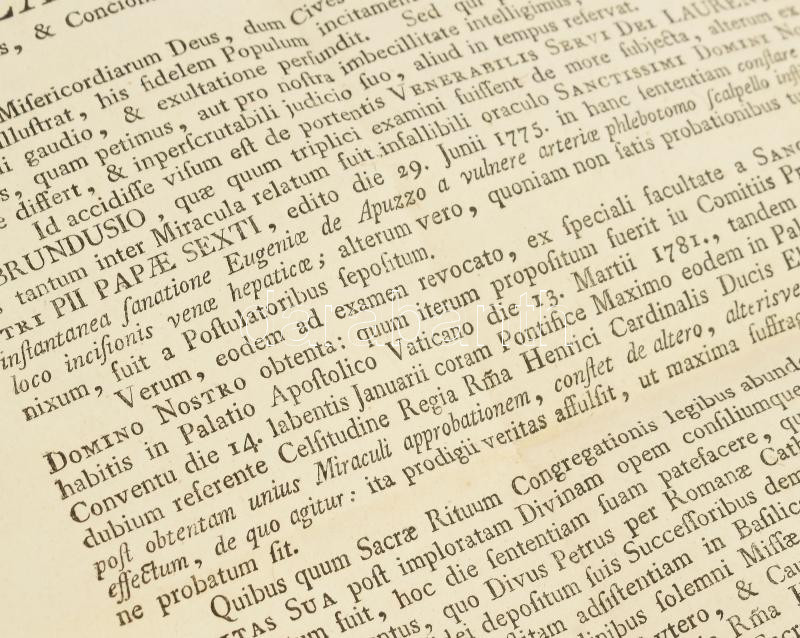 s, & Concion
Misericordiarum Deus, dum Cives
illuſtrat, his fidelem Populum incitamen
i gaudio, & exultatione perfundit. Sed qui
s, quam petimus, aut pro noſtra imbecillitate intelligimus,
e differt, & inperſcrutabili judicio ſuo, aliud in tempus reſervat.
Id accidiſſe viſum eſt de portentis VENERABILIS SERVI DEI LAUREN
BRUNDUSIO, quæ quum triplici examini fuiſſent de more ſubjecta, alterum ex
, tantum inter Miracula relatum fuit infallibili oraculo SANCTISSIMI DOMINI NO
TRI PII PAPÆ SEXTI, edito die 29. Junii 1775. in hanc ſententiam conſtare
inſtantanea ſanatione Eugeniæ de Apuzzo a vulnere arteriæ phlebotomo ſcalpello inſti
loco inciſionis venæ hepaticæ; alterum vero, quoniam non ſatis probationibus tu
nixum, fuit a Poſtulatoribus ſepoſitum.
Verum, eodem ad examen revocato, ex ſpeciali facultate a SANC
DOMINO NOSTRO obtenta: quum iterum propoſitum fuerit iu Comitiis Pr
habitis in Palatio Apoſtolico Vaticano die 13. Martii 1781., tandem
Conventu die 14. labentis Januarii coram Pontifice Maximo eodem in Pal
dubium referente Celſitudine Regia Rm̃a Henrici Cardinalis Ducis E
poſt obtentam unius Miraculi approbationem, conſtet de altero, alteriſve
effectum, de quo agitur: ita prodigii veritas affulſit, ut maxima ſuffrag
ne probatum ſit.
Quibus quum Sacræ Rituum Congregationis legibus abund
ITAS SUA poſt imploratam Divinam opem conſiliumque
tum fuit, hoc die ſententiam ſuam patefacere, qu
ntus, quo Divus Petrus per Romanæ Cath
dei depoſitum ſuis Succeſſoribus dem
adſiſtentiam in Baſilic
dinibus ſolemni Miſſæ
tero, & Cau
Rm̃a
darabanth